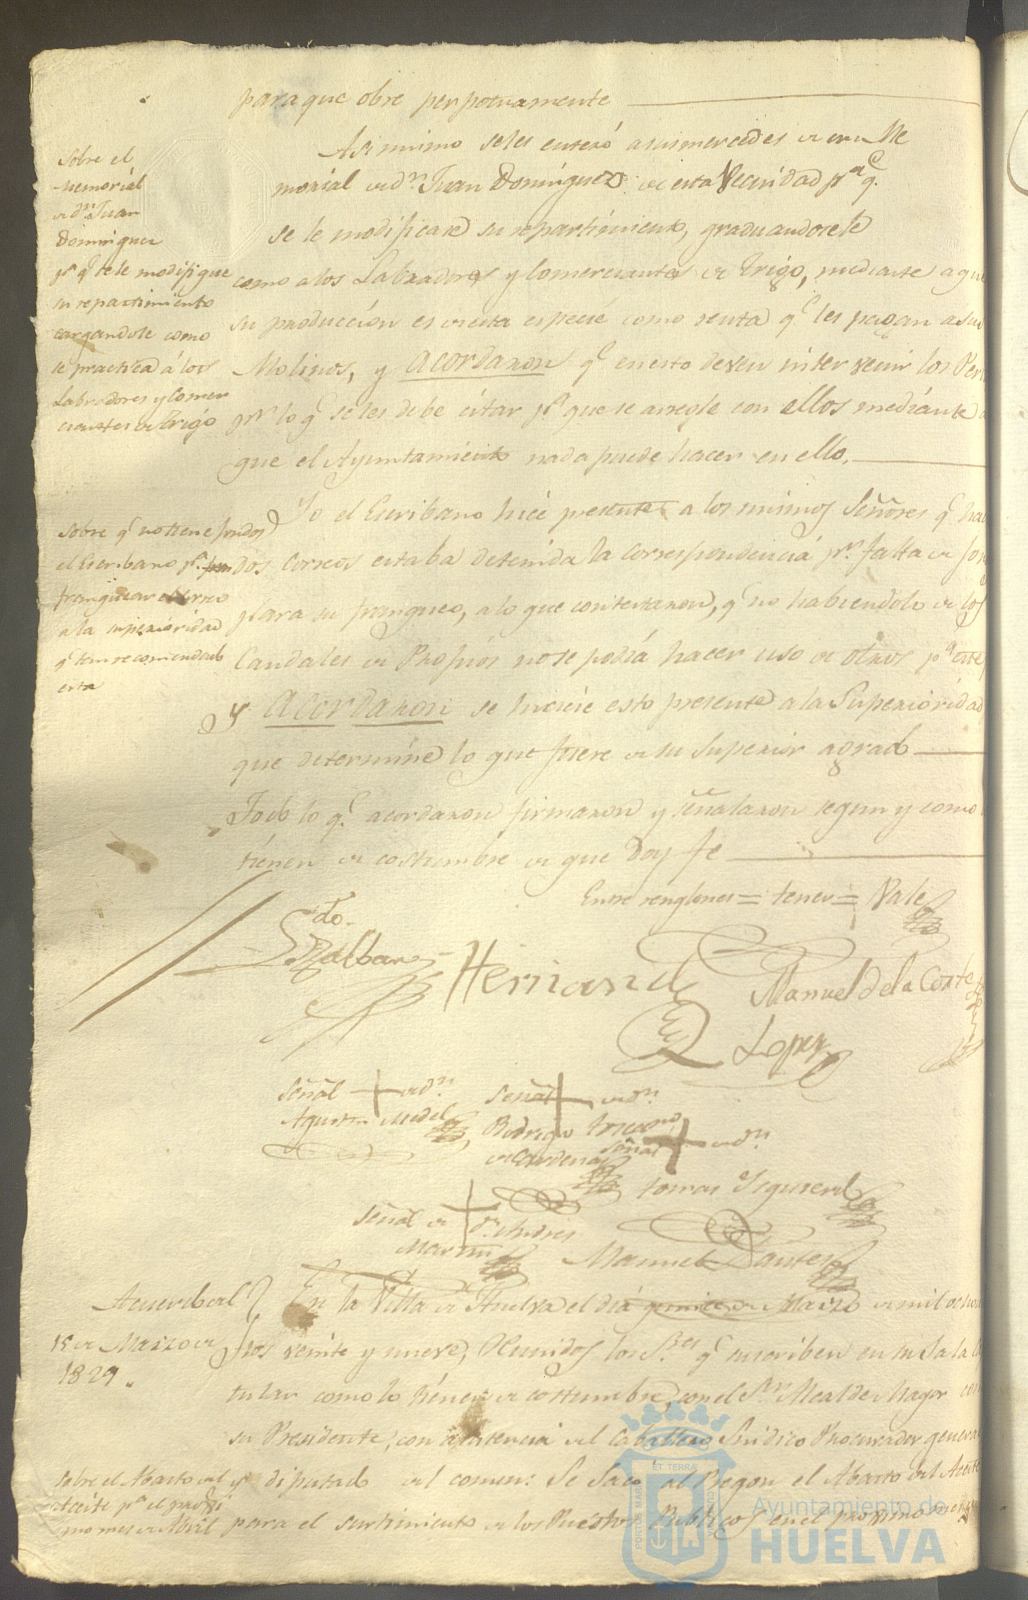 para que obre perpetuamente
Sobre el
Memorial
de dn. Juan
Dominguez
pa. q. se le modifique
su repartimiento
cargandole como
se practica á los
Labradores y Comer
ciantes de Trigo
Asi mismo se les enteró a sus mercedes de un Me
morial de dn. Juan Dominguez de esta Vecindad pa. q.
se le modificase su repartimiento, graduandosele
como a los Labradores y Comerciantes de Trigo, mediante a que
su producción es de esta especie como renta q. les pagan a sus
Molinos, y Acordaron q. en esto deven intervenir los
pr. lo q. se les debe citar pa. que se arregle con ellos mediante a
que el Ayuntamiento nada puede hacer en ello.
Sobre q. no tiene fondos
el Escribano pa.
franquear el correo
a la superioridad
q. tiene recomendado
esta
Yo el Escribano hice presente a los mismos Señores q. hace
dos correos estaba detenida la correspondencia pr. falta de
para su franqueo, a lo que contestaron, q. no habiendolo de los
Caudales de Propios no se podia hacer uso de otros pa. este,
y Acordaron se hiciese esto presente a la Superioridad
que determine lo que fuere de su superior agrado
Todo lo q. acordaron firmaron y señalaron segun y como
tienen de costumbre de que Doy fe
Entre renglones = tener = Vale
Hernand
Manuel de la Corte
Lopez
Señal de dn.
Agustin Medel
Señal de dn.
Rodrigo
de Cardenas
Señal de dn.
Tomas
Señal de dn. Andres
Martin
Manuel
Acuerdo del
15 de Marzo de
1829.
En la Villa de Huelva el dia quince de Marzo de mil ocho
tos veinte y nueve, Reunidos los Sres. q. suscriben en su Sala
tular como lo tienen de costumbre, con el Sr. Alcalde Mayor
su Presidente, con asistencia del Caballero Sindico Procurador general
Sobre el Abasto del
Aceite pa. el proxi
mo mes de Abril
y diputado del comun: Se Sacó al Pregon el Abasto del Aceite
para el surtimiento de los Puestos Publicos en el proximo mes
PORTUS MARIS
ET TERRAE
CUSTODIA
Ayuntamiento de
HUELVA